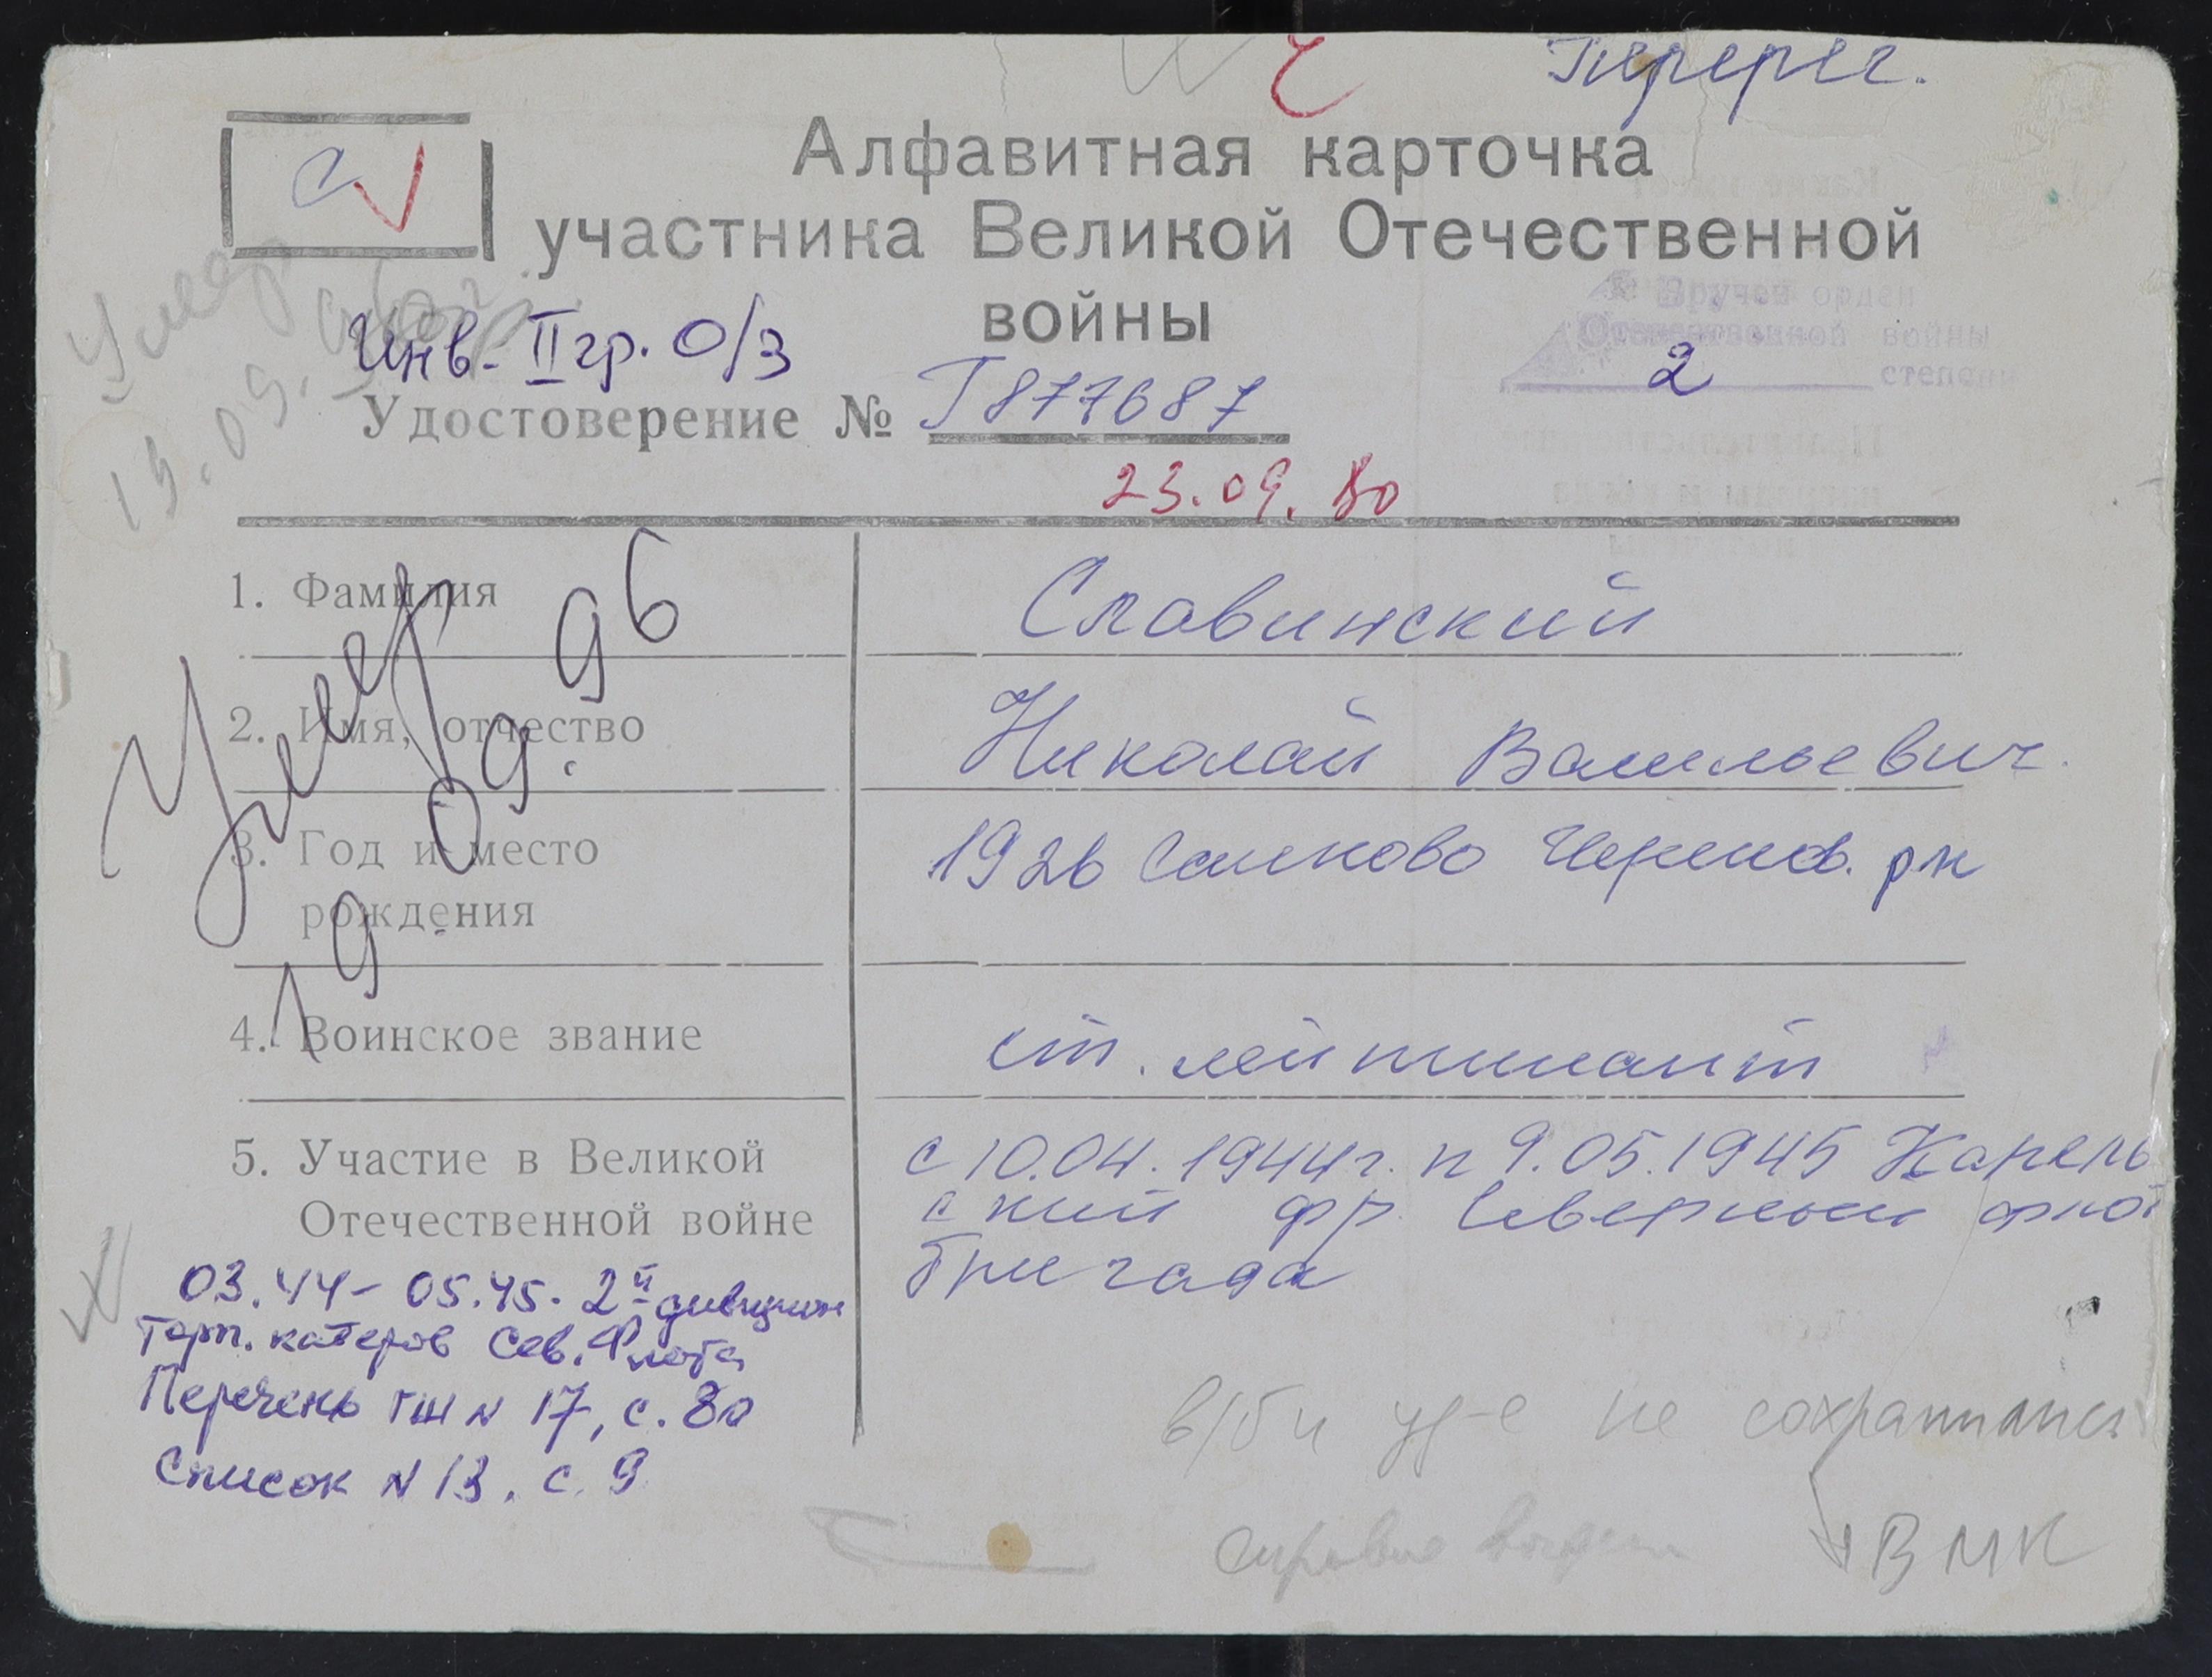 Перерег.
Алфавитная карточка
участника Великой Отечественной
войны
Вручен орден
Отечественной войны
2 степени
Инв. II гр. О/З
Удостоверение № Г877687
23.09.80
Умер
19.09.
Умер
19.09.96
1. Фамилия Славинский
2. Имя, отчество Николай Васильевич.
3. Год и место 1926 рн
рождения
4. Воинское звание ст. лейтинант
5. Участие в Великой с 10.04.1944 г. п 9.05.1945 Карель
Отечественной войне ский фр. Северный флот
бригада
03.44 - 05.45. 2й дивизион
Торп. катеров Сев. Флота
Перечень ГШ N 17, с. 80
Список N 13, с. 9
в/б и уд-е не сохранились
справка
ВМК